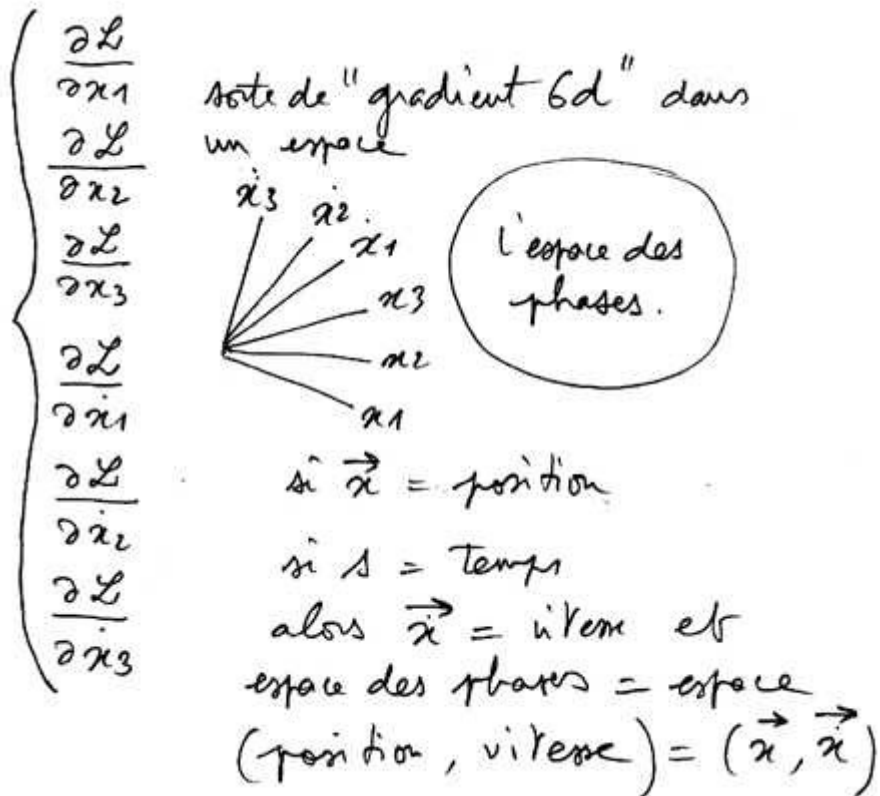 ∂ℒ/∂x1
∂ℒ/∂x2
∂ℒ/∂x3
∂ℒ/∂ẋ1
∂ℒ/∂ẋ2
∂ℒ/∂ẋ3
sorte de "gradient 6d" dans
un espace
ẋ3
ẋ2
ẋ1
x3
x2
x1
l'espace des
phases.
si x⃗ = position
si s = temps
alors ẋ⃗ = vitesse et
espace des phases = espace
(position, vitesse) = (x⃗, ẋ⃗)